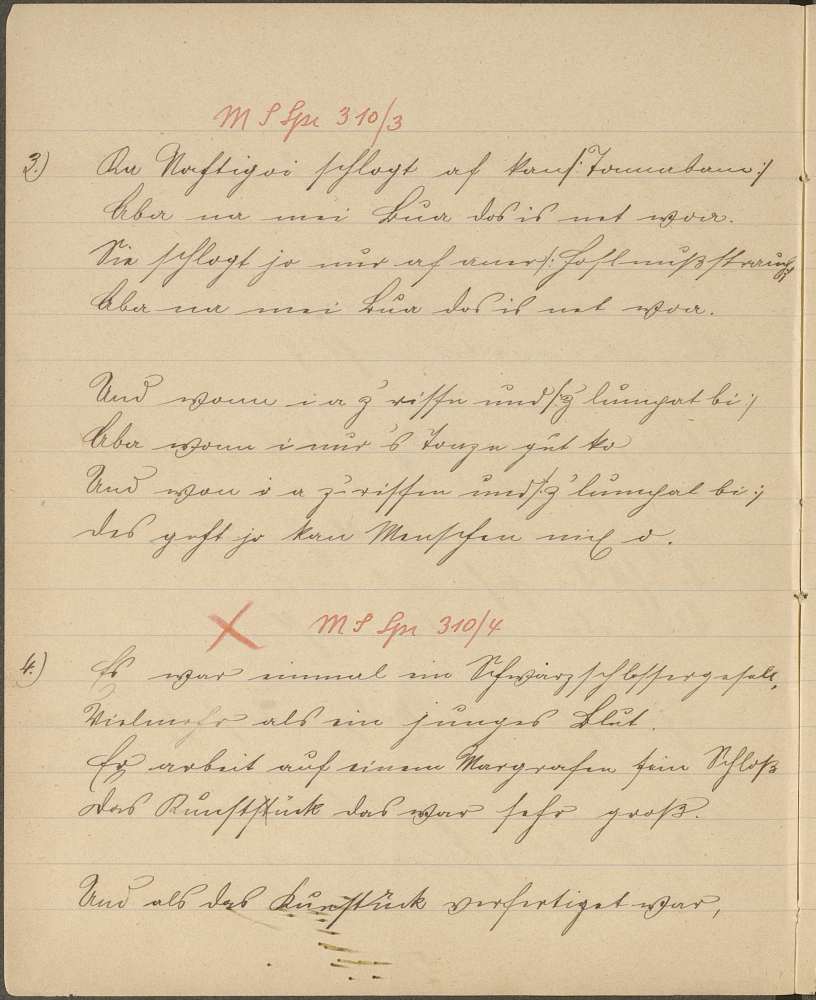 M S Spr 310/3
3.) Da Nachtigoi schlogt af kan /: Tannabam :/
Aba na mei Bua dos is net woa.
Sie schlogt jo nur af aner /: Hoslnußstraud :/
Aba na mei Bua dos is net woa.
Und wonn i a z'rissn und /: z'lumpat bi :/
Aba wonn i nur 's Tonzn gut ko
Und won i a z'rissen und /: z'lumpat bi :/
Des geht jo kan Menschen nix o.
M S Spr 310/4
4.) Es war einmal ein Schwarzschlossergesell,
Vielmehr als ein junges Blut.
Er arbeit auf einem Margrafen sein Schloß
Das Kunststück das war sehr groß.
Und als das Kunststück verfertiget war,